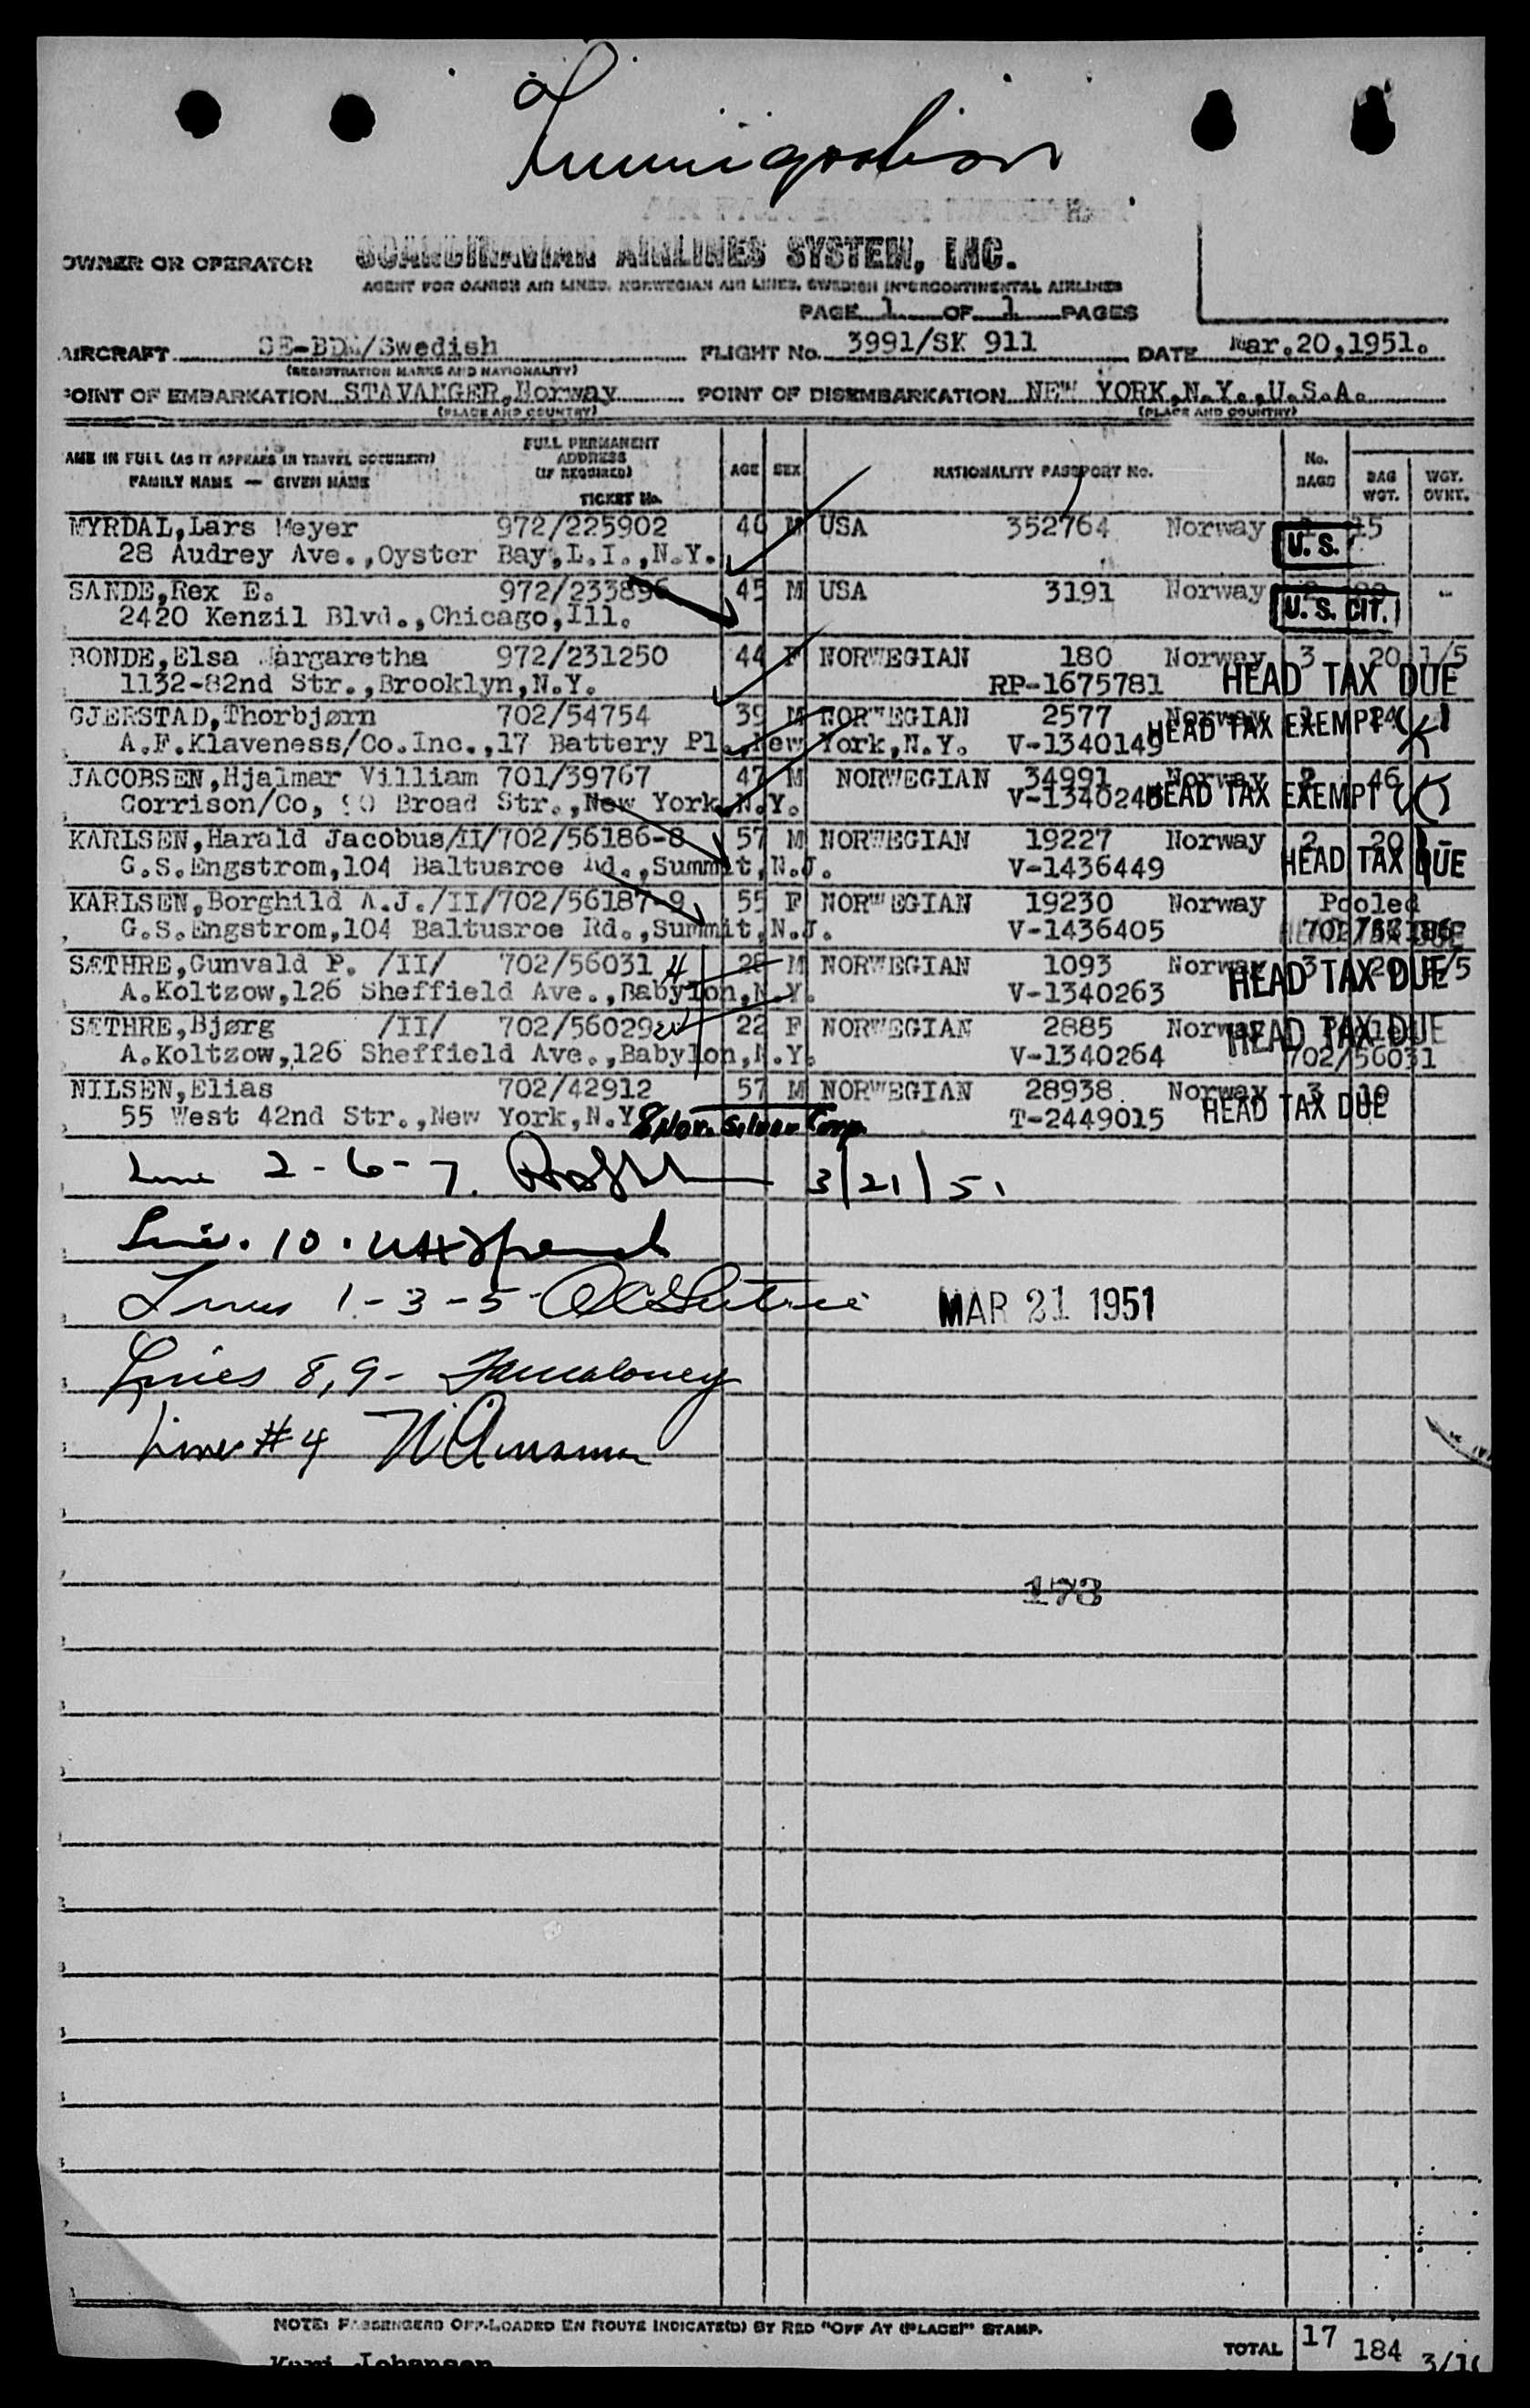 Immigration
OWNER OR OPERATOR SCANDINAVIAN AIRLINES SYSTEM, INC.
AGENT FOR DANISH AIR LINES, NORWEGIAN AIR LINES, SWEDISH INTERCONTINENTAL AIRLINES
PAGE 1 OF 1 PAGES
AIRCRAFT /Swedish FLIGHT No. 3991/SK 911 DATE Mar.20,1951.
(REGISTRATION MARKS AND NATIONALITY)
POINT OF EMBARKATION STAVANGER,Norway POINT OF DISEMBARKATION NEW YORK,N.Y.,U.S.A.
(PLACE AND COUNTRY) (PLACE AND COUNTRY)
AME IN FULL (AS IT APPEARS IN TRAVEL DOCUMENT) FAMILY NAME — GIVEN NAME FULL PERMANENT ADDRESS (IF REQUIRED) TICKET No. AGE SEX NATIONALITY PASSPORT No. No. BAGS BAG WGT. WGT. OVWT.
MYRDAL,Lars Meyer 972/225902 40 M USA 352764 Norway 15
28 Audrey Ave.,Oyster Bay,L.I.,N.Y. U.S.
SANDE,Rex E. 972/233896 45 M USA 3191 Norway -
2420 Kenzil Blvd.,Chicago,Ill. U.S. CIT.
BONDE,Elsa Margaretha 972/231250 44 F NORWEGIAN 180 Norway 3 20 1/5
1132-82nd Str.,Brooklyn,N.Y. RP-1675781 HEAD TAX DUE
GJERSTAD,Thorbjørn 702/54754 39 M NORWEGIAN 2577 Norway
A.F.Klaveness/Co.Inc.,17 Battery Pl.,New York,N.Y. V-1340149 HEAD TAX EXEMPT
JACOBSEN,Hjalmar Villiam 701/39767 47 M NORWEGIAN 34991 Norway 2 46
Gorrison/Co, 90 Broad Str.,New York,N.Y. V-1340248 HEAD TAX EXEMPT
KARLSEN,Harald Jacobus/II/702/56186-8 57 M NORWEGIAN 19227 Norway 2 20 -
G.S.Engstrom,104 Baltusroe Rd.,Summit,N.J. V-1436449 HEAD TAX DUE
KARLSEN,Borghild A.J./II/702/56187-9 55 F NORWEGIAN 19230 Norway Pooled
G.S.Engstrom,104 Baltusroe Rd.,Summit,N.J. V-1436405 702/56186
SÆTHRE,Gunvald P. /II/ 702/56031 4 28 M NORWEGIAN 1093 Norway 3 20 1/5
A.Koltzow,126 Sheffield Ave.,Babylon,N.Y. V-1340263 HEAD TAX DUE
SÆTHRE,Bjørg /II/ 702/56029 22 F NORWEGIAN 2885 Norway
A.Koltzow,126 Sheffield Ave.,Babylon,N.Y. V-1340264 HEAD TAX DUE 702/56031
NILSEN,Elias 702/42912 57 M NORWEGIAN 28938 Norway 3 10
55 West 42nd Str.,New York,N.Y. Corp. T-2449015 HEAD TAX DUE
Line 2-6-7. 3/21/51
Line. 10.
Lines 1-3-5- MAR 21 1951
Lines 8,9-
Line #4
173
NOTE: PASSENGERS OFF-LOADED EN ROUTE INDICATE(D) BY RED "OFF AT (PLACE)" STAMP.
TOTAL 17 184
Johansen